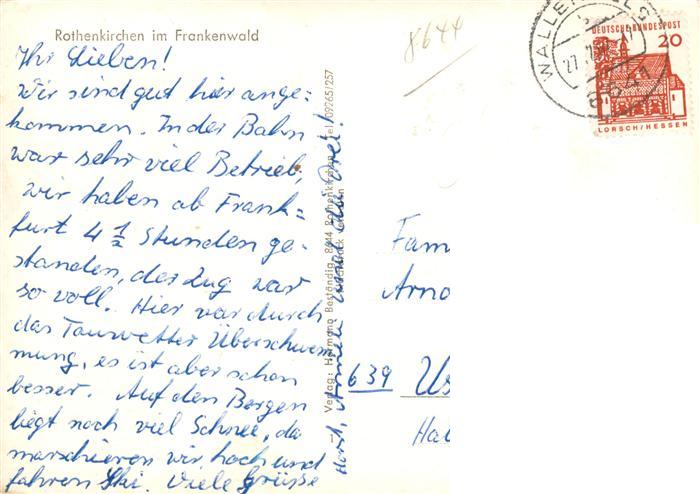 Rothenkirchen im Frankenwald
8644
Ihr Lieben!
Wir sind gut hier ange=
kommen. In der Bahn
war sehr viel Betrieb,
wir haben ab Frank=
furt 4 1/2 Stunden ge-
standen, der Zug war
so voll. Hier war durch
das Tauwetter Überschwem
mung, es ist aber schon
besser. Auf den Bergen
liegt noch viel Schnee, da
marschieren wir hoch und
fahren Ski. Viele Grüße
Verlag: Hermann Beständig, 8644 Rothenkirchen, Tel. 09265/257
DEUTSCHE BUNDESPOST
20
LORSCH/HESSEN
Fam
Arno
639 Us